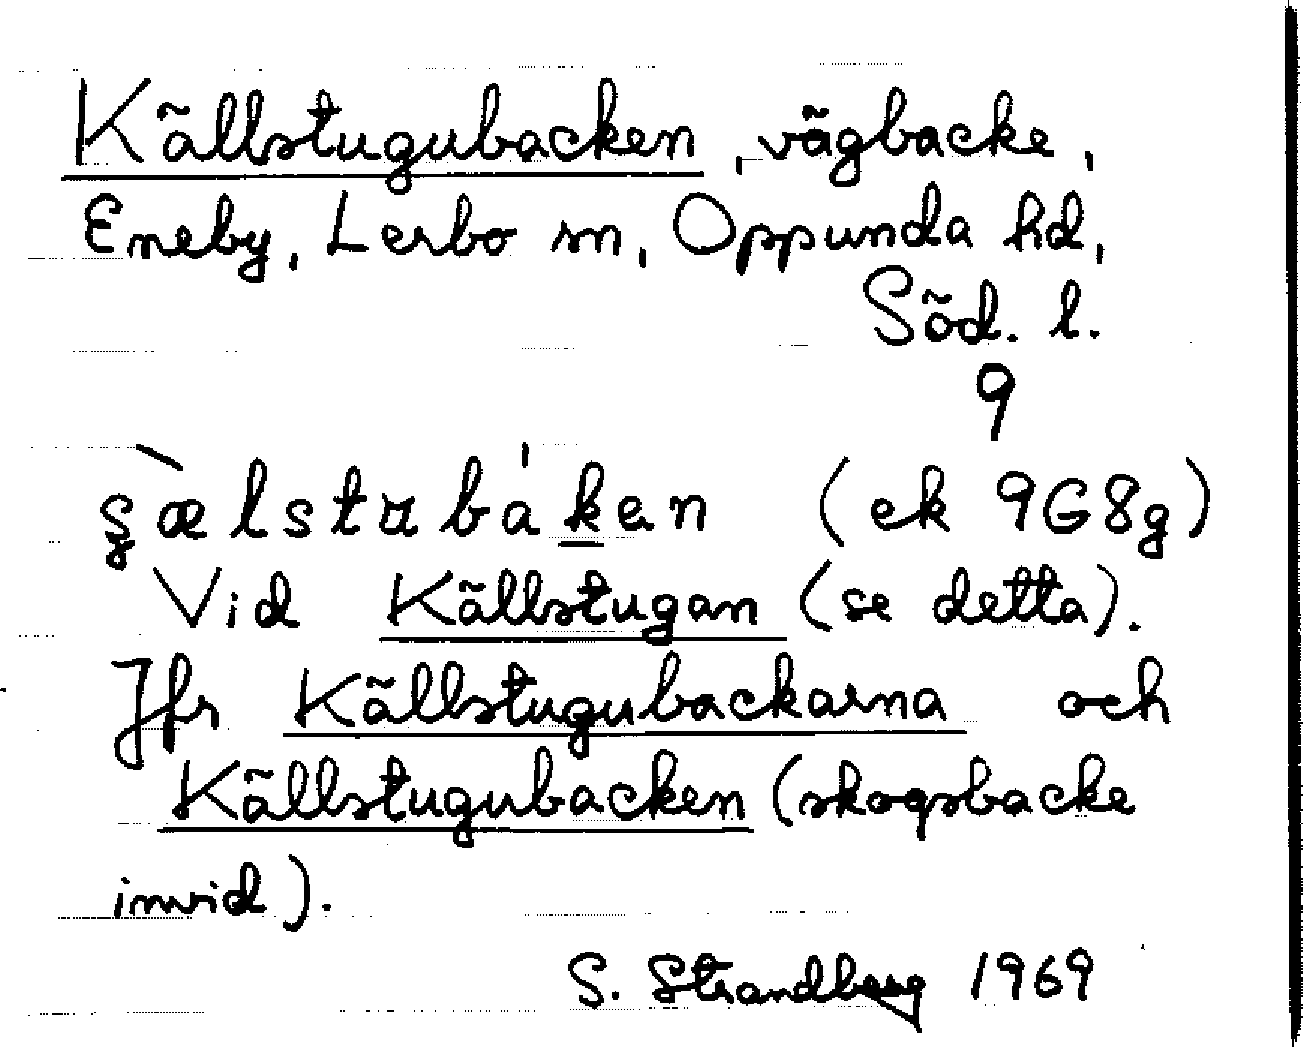 Källstugubacken, vägbacke,
Eneby, Lerbo sn, Oppunda hd,
Söd. l.
9
(ek 9G8g)
Vid Källstugan (se detta).
Jfr Källstugubackarna och
Källstugubacken (skogsbacke
invid).
S. Strandberg 1969